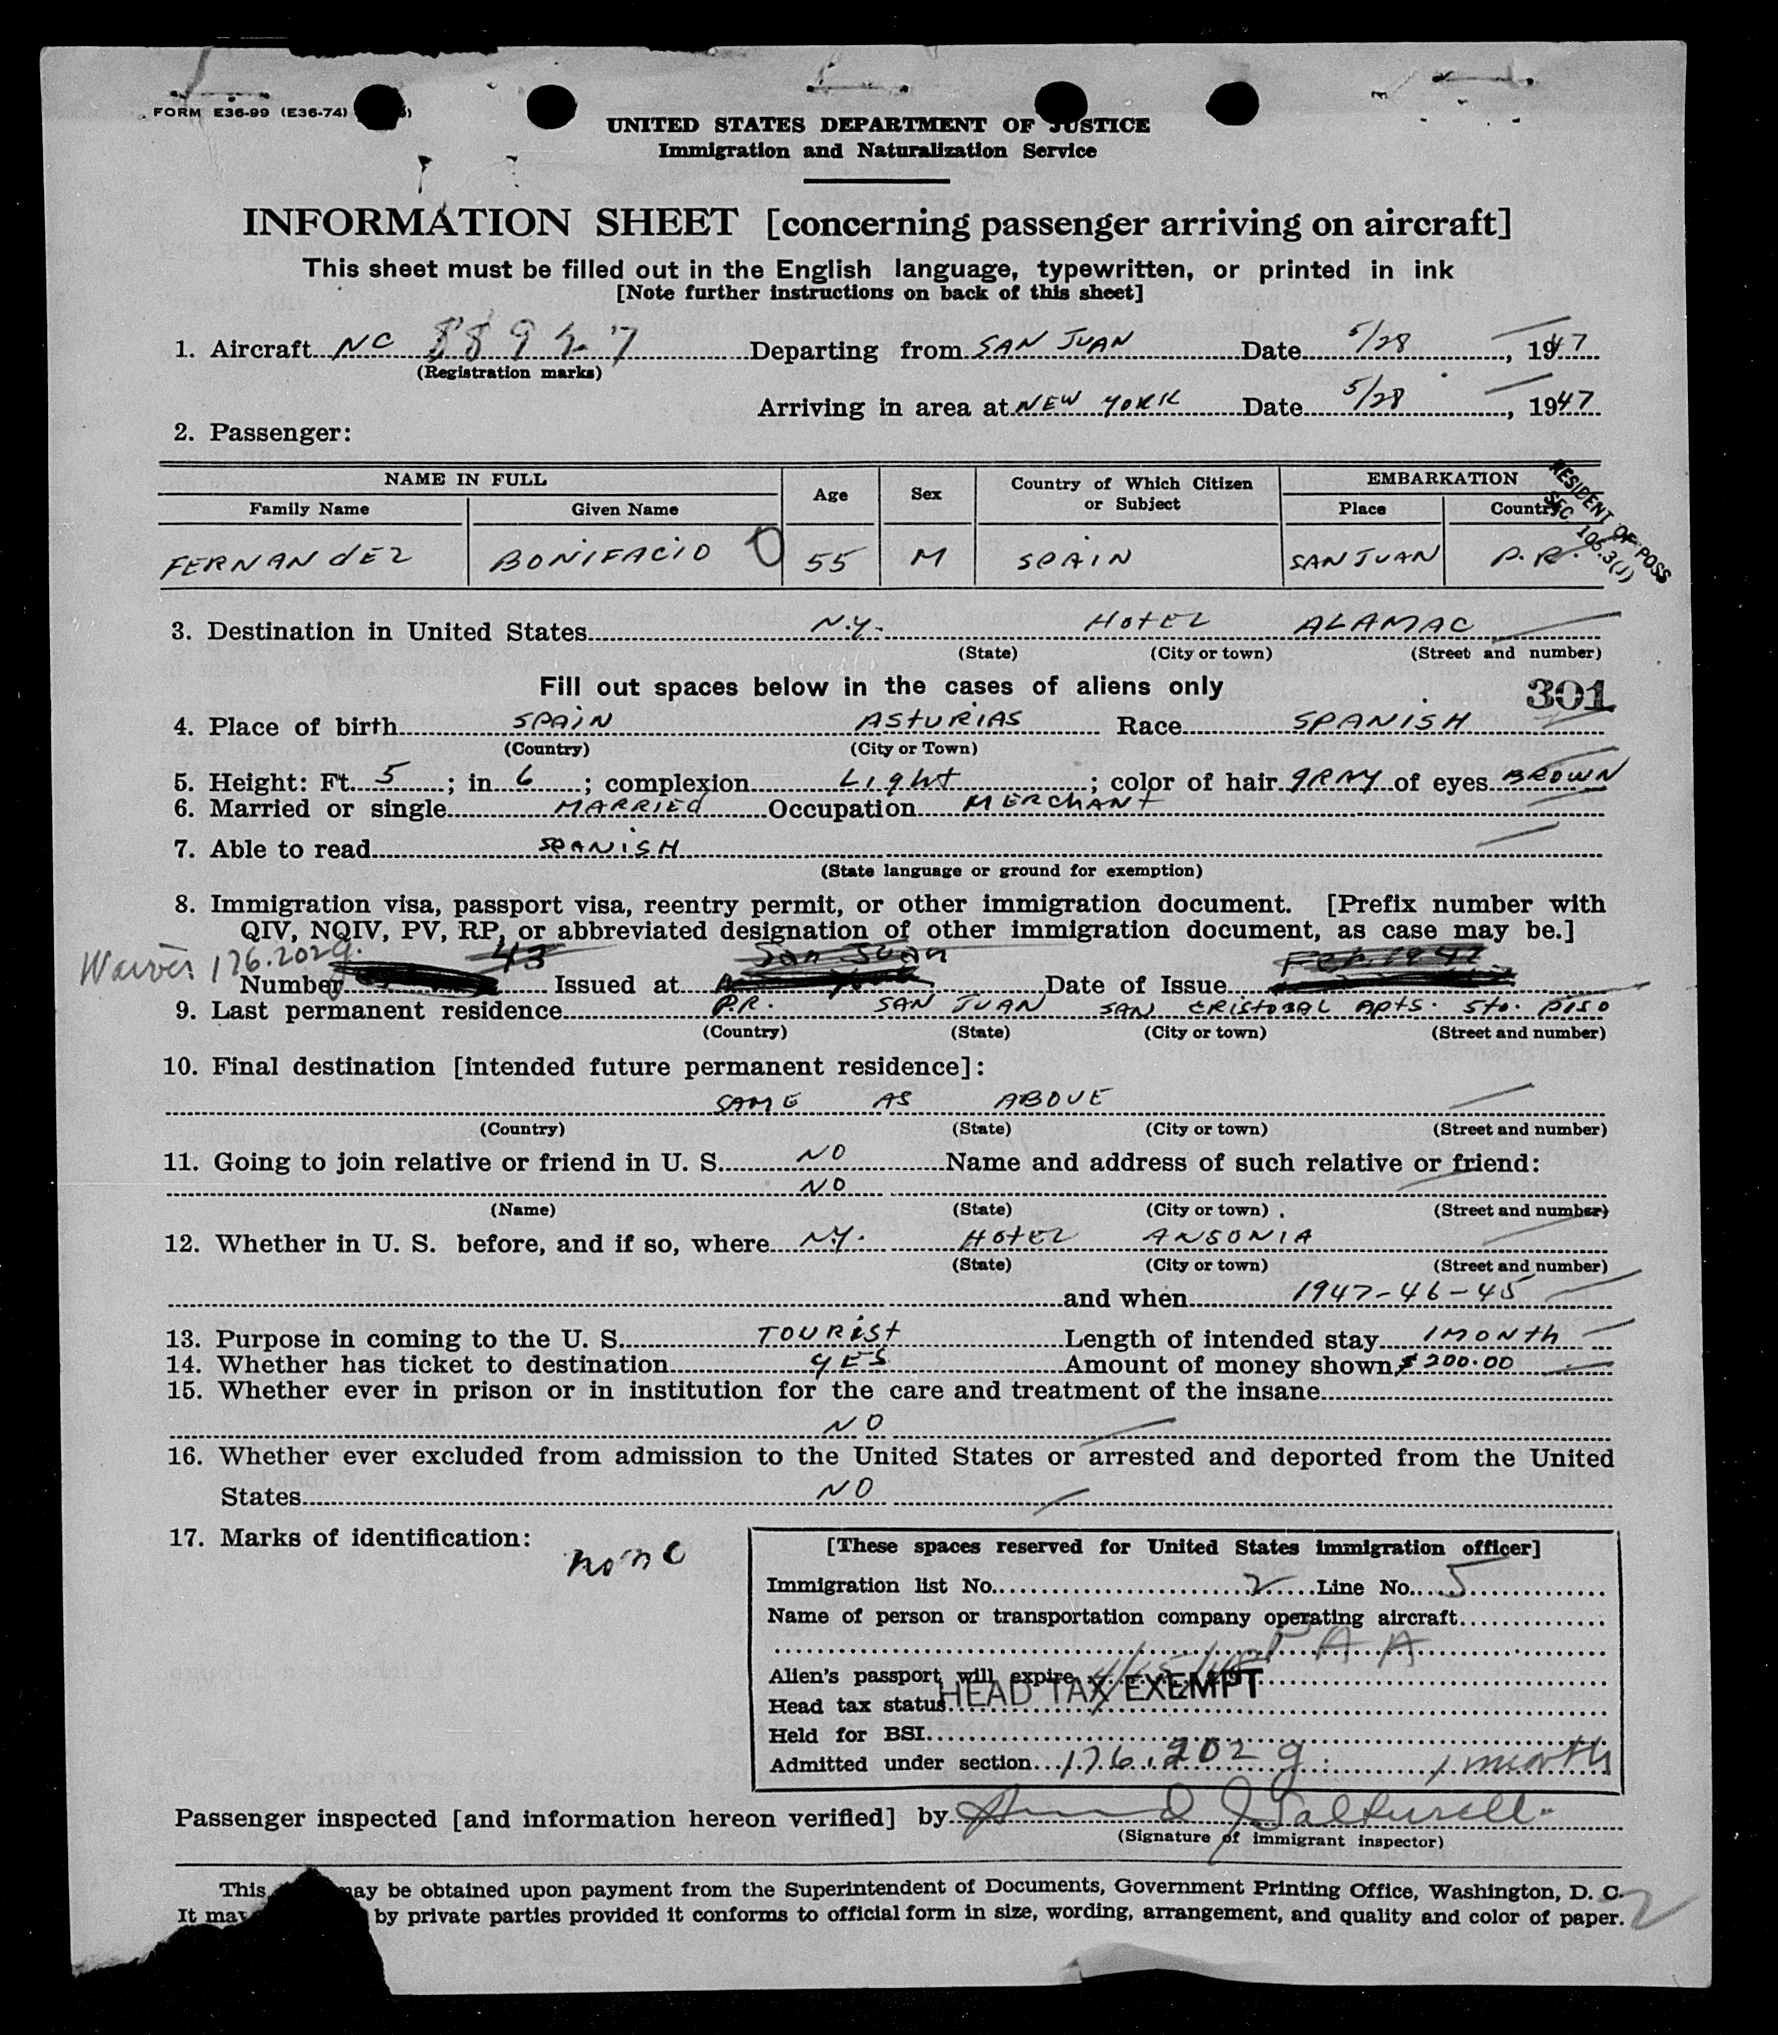 FORM E36-99 (E36-74)
UNITED STATES DEPARTMENT OF JUSTICE
Immigration and Naturalization Service
INFORMATION SHEET [concerning passenger arriving on aircraft]
This sheet must be filled out in the English language, typewritten, or printed in ink
[Note further instructions on back of this sheet]
1. Aircraft NC Departing from SAN JUAN Date 5/28, 1947
(Registration marks)
Arriving in area at NEW YORK Date 5/28, 1947
2. Passenger:
NAME IN FULL Age Sex Country of Which Citizen or Subject EMBARKATION
Family Name Given Name Place Country
RESIDENT OF POSS
SEC 105.3(J)
FERNANdEZ BONIFACIO 55 M SPAIN SAN JUAN P.R.
3. Destination in United States N.Y. HOTEL ALAMAC
(State) (City or town) (Street and number)
Fill out spaces below in the cases of aliens only 301
4. Place of birth SPAIN ASTURIAS Race SPANISH
(Country) (City or Town)
5. Height: Ft. 5; in. 6; complexion Light; color of hair gRAY of eyes BROWN
6. Married or single MARRIEd Occupation MERCHANT
7. Able to read SPANISH
(State language or ground for exemption)
8. Immigration visa, passport visa, reentry permit, or other immigration document. [Prefix number with
QIV, NQIV, PV, RP, or abbreviated designation of other immigration document, as case may be.]
Waiver 176.202g. 43 San Juan Feb. 1947
Number Issued at Date of Issue
9. Last permanent residence P.R. SAN JUAN SAN CRISTOBAL APTS. 5to. PISO
(Country) (State) (City or town) (Street and number)
10. Final destination [intended future permanent residence]:
SAME AS ABOVE
(Country) (State) (City or town) (Street and number)
11. Going to join relative or friend in U. S. NO Name and address of such relative or friend:
NO
(Name) (State) (City or town) (Street and number)
12. Whether in U. S. before, and if so, where N.Y. HOTEL ANSONIA
(State) (City or town) (Street and number)
and when 1947-46-45
13. Purpose in coming to the U. S. TOURIST Length of intended stay 1 MONTH
14. Whether has ticket to destination YES Amount of money shown $200.00
15. Whether ever in prison or in institution for the care and treatment of the insane
NO
16. Whether ever excluded from admission to the United States or arrested and deported from the United
States NO
17. Marks of identification: none
[These spaces reserved for United States immigration officer]
Immigration list No. 2 Line No. 5
Name of person or transportation company operating aircraft
PAA
Alien's passport will expire
Head tax status HEAD TAX EXEMPT
Held for BSI
Admitted under section 176.202g. 1 month
Passenger inspected [and information hereon verified] by
(Signature of immigrant inspector)
This may be obtained upon payment from the Superintendent of Documents, Government Printing Office, Washington, D. C.
It may by private parties provided it conforms to official form in size, wording, arrangement, and quality and color of paper. 2